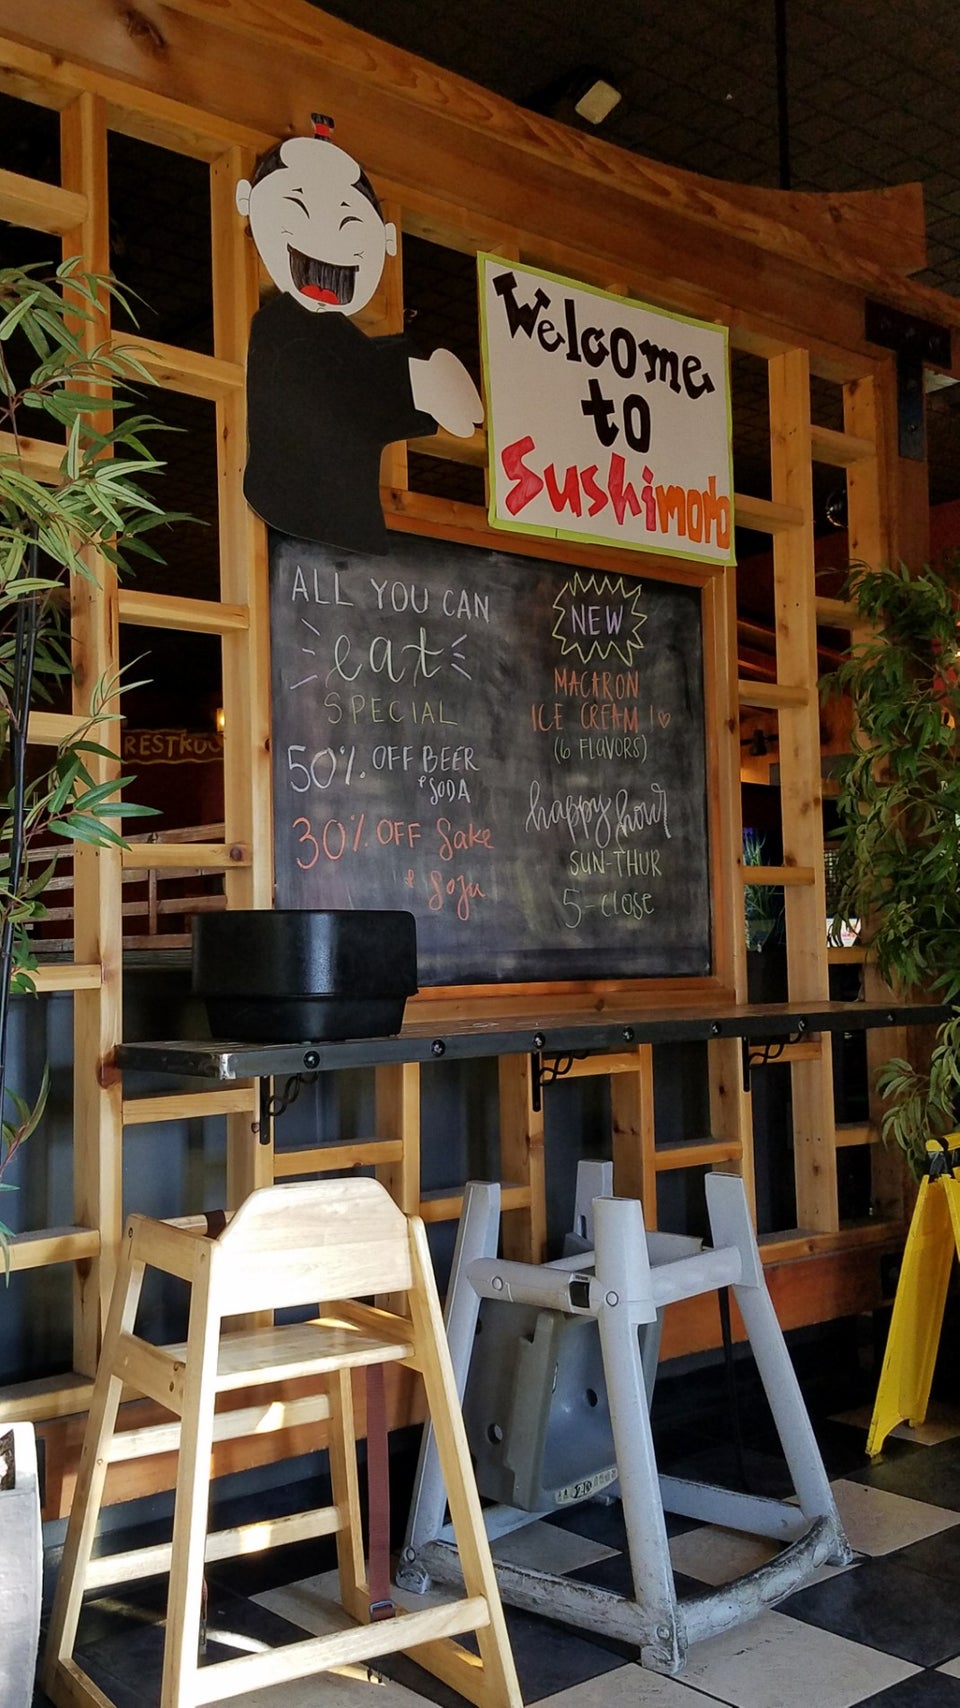 Welcome
to
Sushimoto
ALL YOU CAN
eat
SPECIAL
50% OFF BEER
& SODA
30% OFF Sake
& Soju
NEW
MACARON
ICE CREAM!
(6 FLAVORS)
happy hour
SUN-THUR
5-close